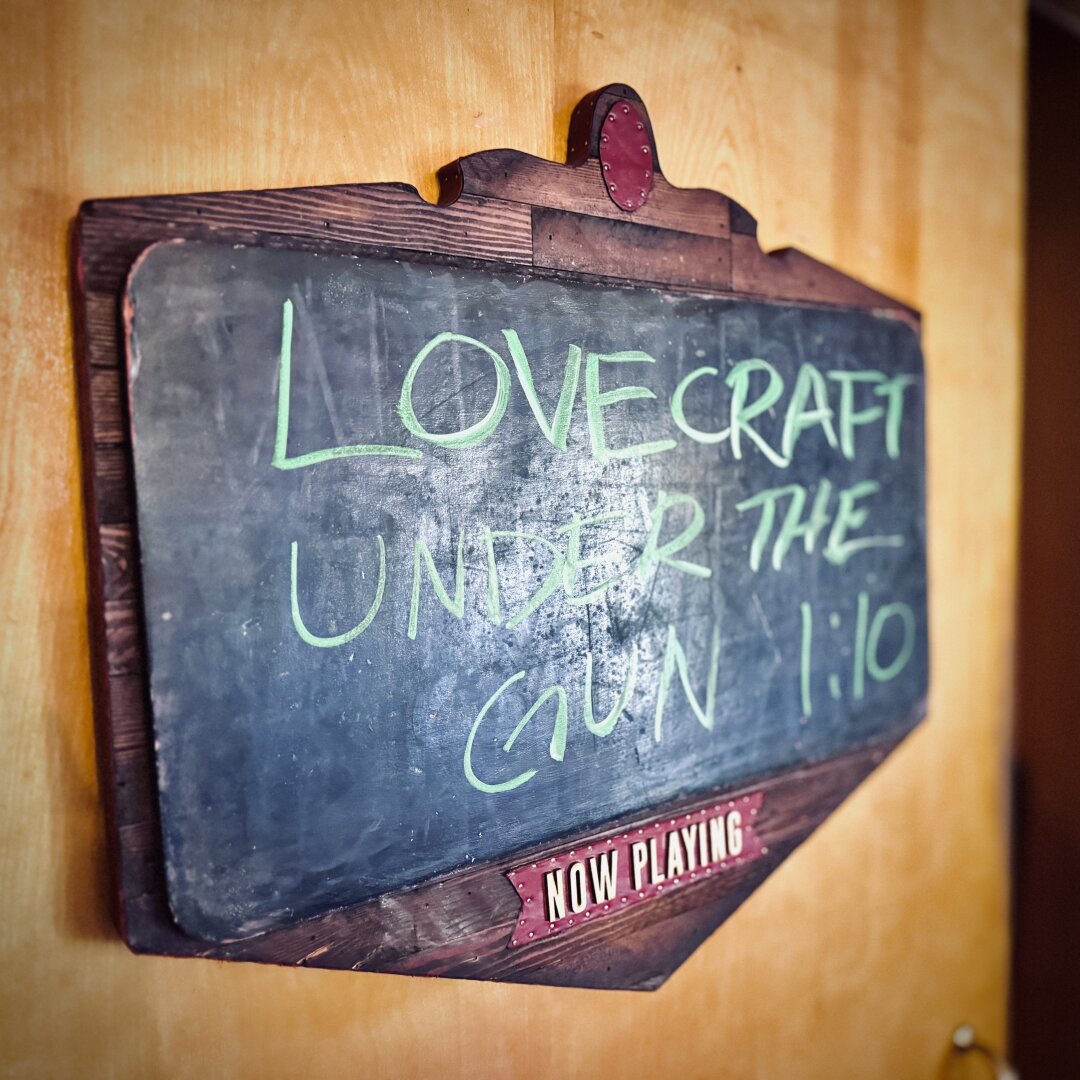 LOVECRAFT
UNDER THE
GUN 1:10
NOW PLAYING